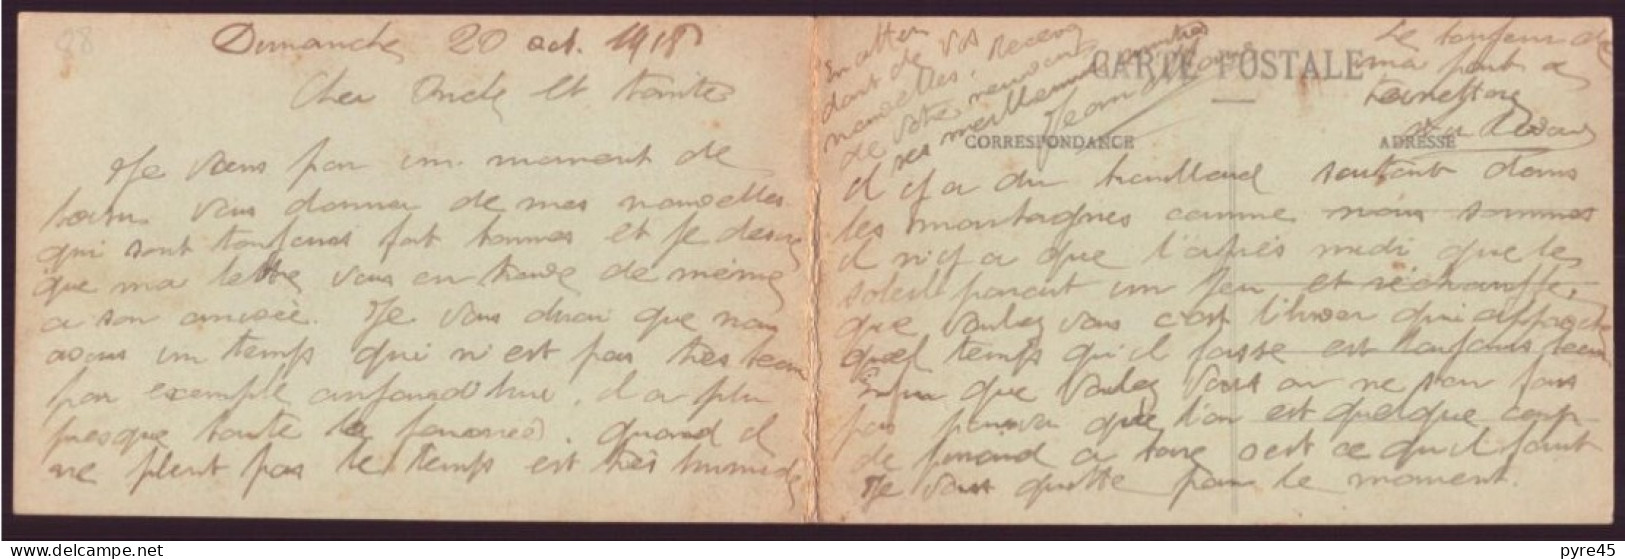 88
Dimanche 20 oct. 1918
Cher Oncle et tante
Je vous un moment de
vous donner de mes nouvelles
qui sont toujours fort bonnes et je desire
que ma lettre vous en trouve de même
a son arrivée. Je vous dirai que nous
avons un temps qui n'est pas très beau
par exemple aujourd'hui, il a plu
presque toute la journée. quand il
ne pleut pas le temps est très humide
CARTE POSTALE
CORRESPONDANCE
ADRESSE
il y a du brouillard surtout dans
les montagnes comme nous sommes
il n'y a que l'après midi que le
soleil parait un peu et réchauffe,
que voulez vous c'est l'hiver qui approche
quel temps qu'il fasse est toujours beau
Enfin que voulez vous on ne s'en fais
pas pourvu que l'on est quelque coup
de pinard a boire c'est ce qu'il faut
Je vous quitte pour le moment.
En atten
dant de vos
nouvelles. Recevez
de votre neveu
ses meilleures
Le bonjour de
ma part a